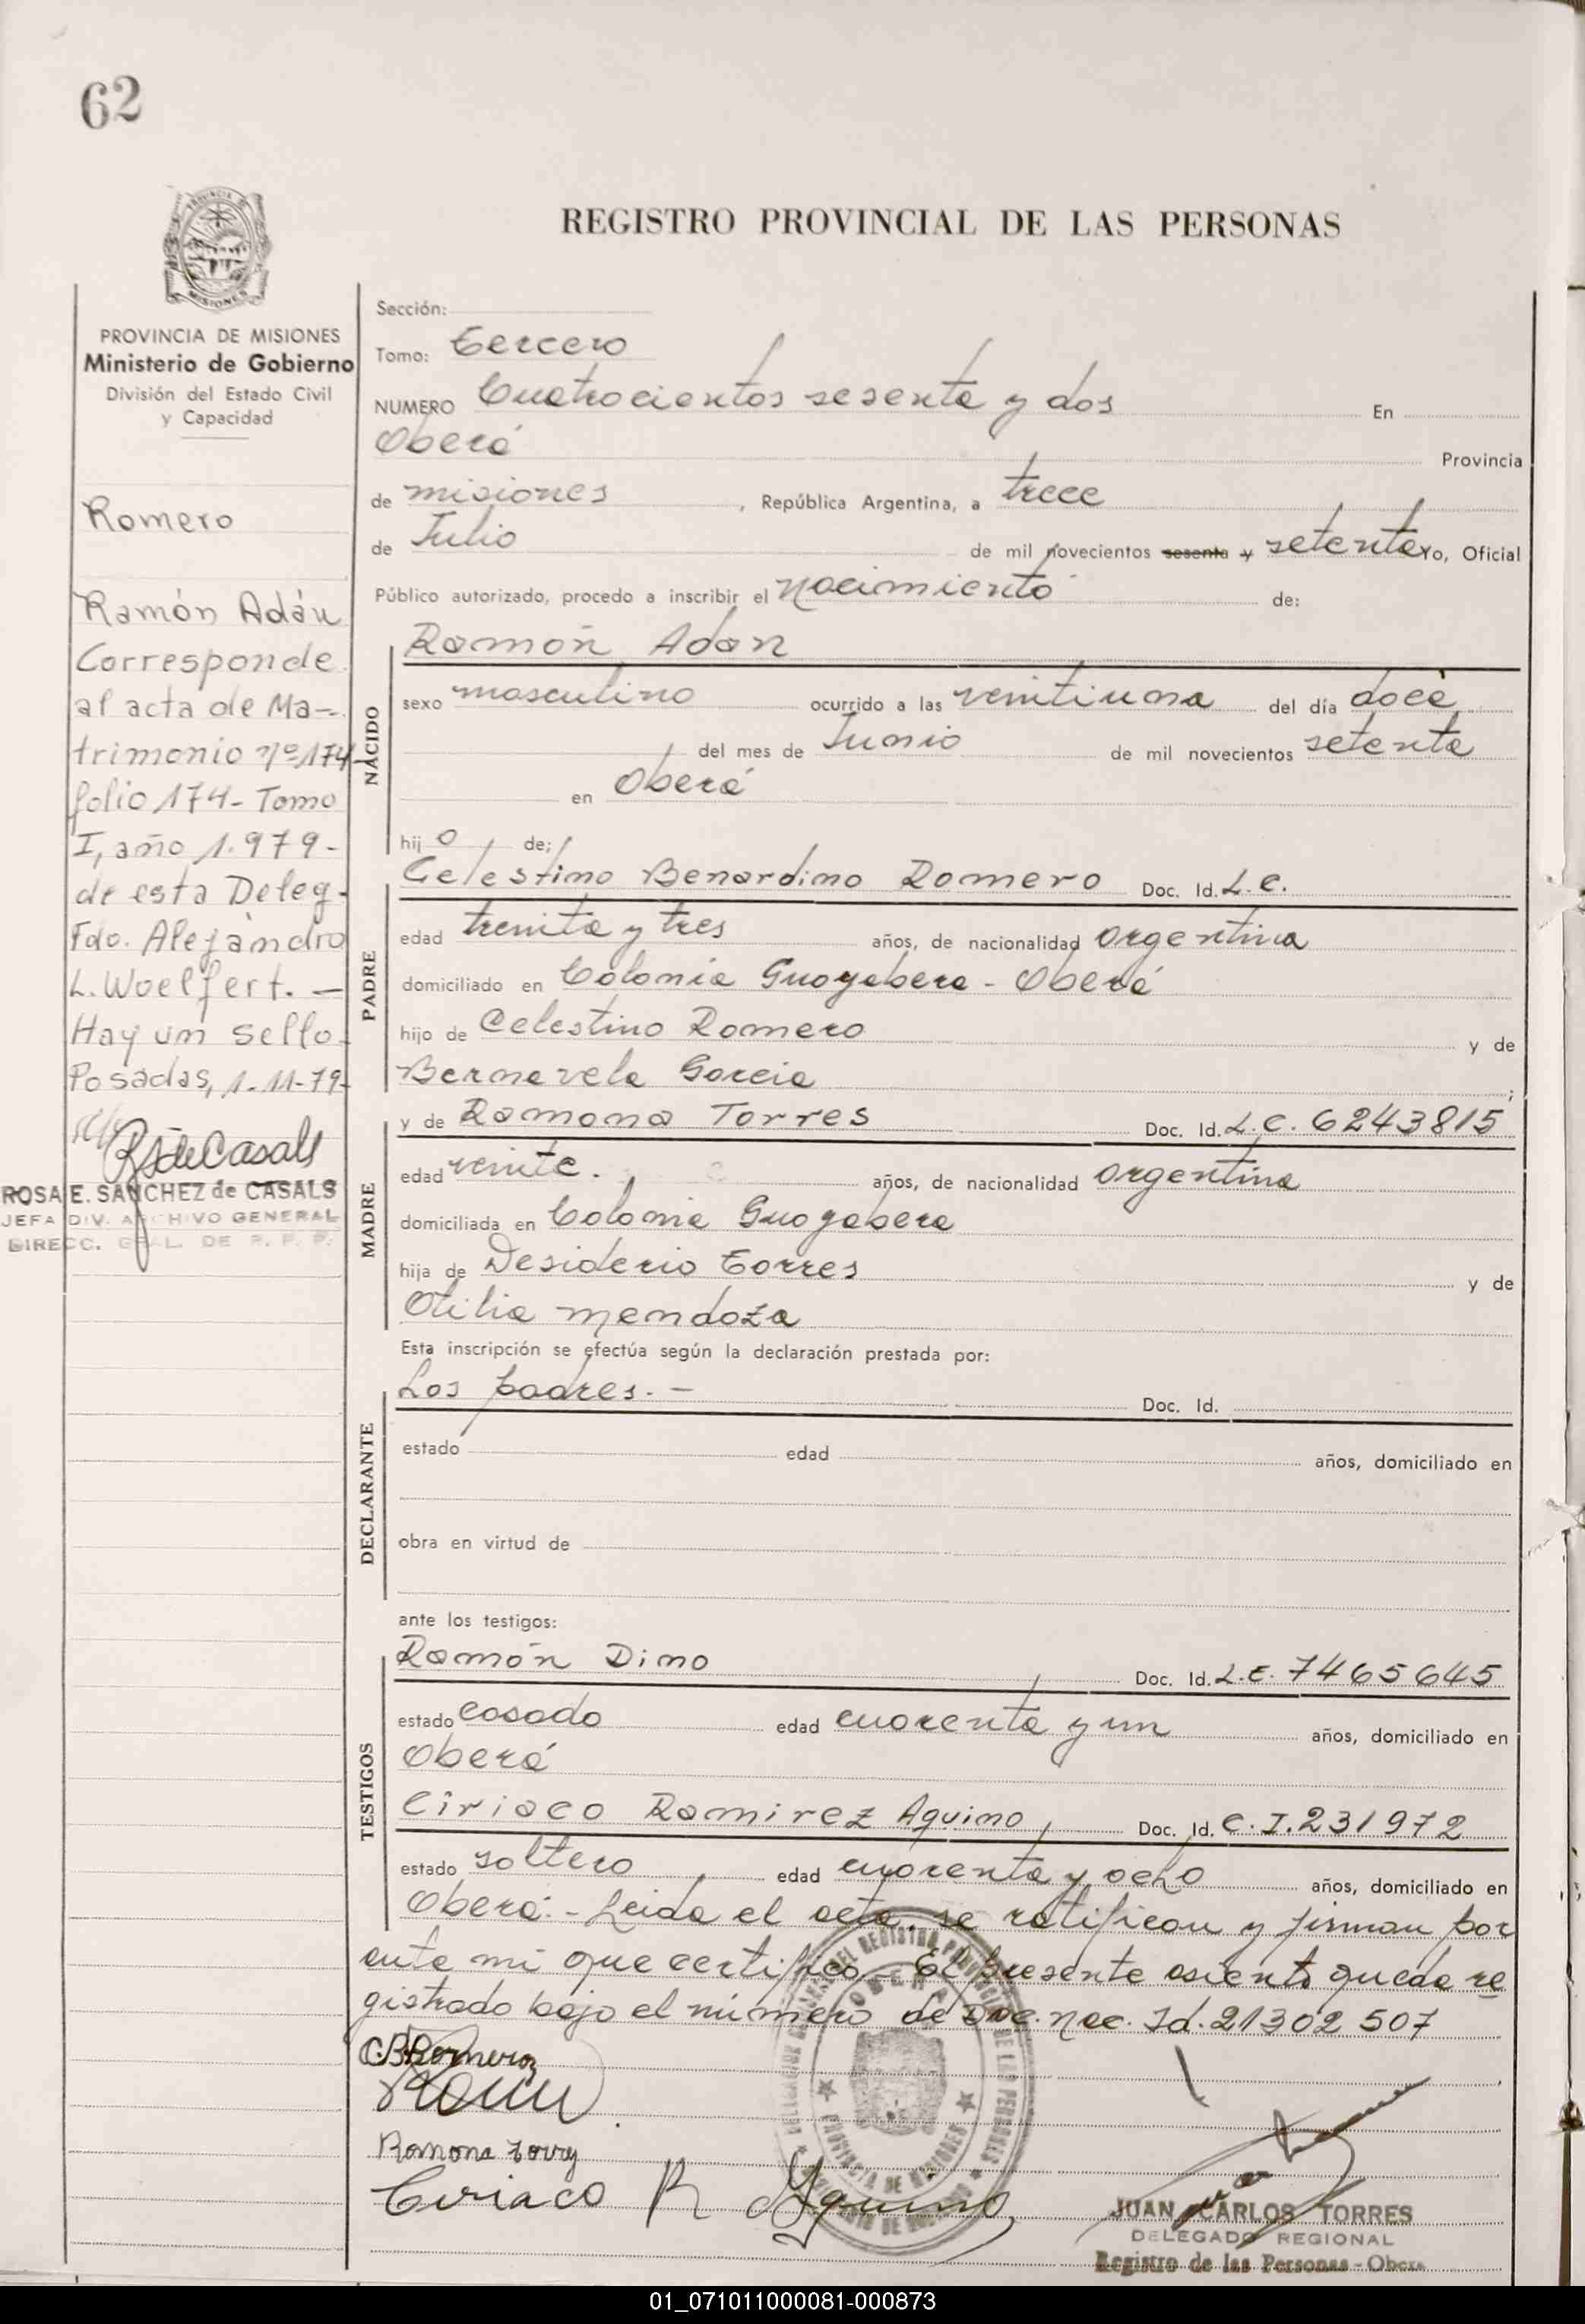 62
REGISTRO PROVINCIAL DE LAS PERSONAS
MISIONES
PROVINCIA DE MISIONES
Ministerio de Gobierno
División del Estado Civil
y Capacidad
Romero
Ramón Adán
Corresponde
al acta de Ma-
trimonio nº 174
folio 174- Tomo
I, año 1.979-
de esta Deleg.
Fdo. Alejandro
L. Woelfert. —
Hay un sello.
Posadas, 1-11-79-
RSdeCasals
ROSA E. SANCHEZ de CASALS
JEFA DIV. ARCHIVO GENERAL
DIRECC. GRAL. DE R. P. P.
Sección:
Tomo: Tercero
NUMERO Cuatrocientos sesenta y dos En
Oberá Provincia
de misiones, República Argentina, a trece
de Julio de mil novecientos sesenta y setenta Yo, Oficial
Público autorizado, procedo a inscribir el nacimiento de:
NACIDO
Ramón Adan
sexo masculino ocurrido a las veintiuna del día doce
del mes de Junio de mil novecientos setenta
en Oberá
hij o de;
PADRE
Celestino Benardino Romero Doc. Id. L.E.
edad treinta y tres años, de nacionalidad argentina
domiciliado en Colonia Guayabera - Oberá
hijo de Celestino Romero y de
Bernavela Garcia ;
MADRE
y de Ramona Torres Doc. Id. L.C. 6243815
edad veinte. años, de nacionalidad argentina
domiciliada en Colonia Guayabera
hija de Desiderio Torres y de
Otilia mendoza
Esta inscripción se efectúa según la declaración prestada por:
DECLARANTE
Los padres. - Doc. Id.
estado edad años, domiciliado en
obra en virtud de
ante los testigos:
TESTIGOS
Ramón Dino Doc. Id. L.E. 7465645
estado casado edad cuarenta y un años, domiciliado en
Oberá
Ciriaco Ramirez Aquino Doc. Id. C.I. 231972
estado soltero edad cuarenta y ocho años, domiciliado en
Oberá.- Leida el acta, se ratifican y firman por
ante mi que certifico. El presente asiento queda re
gistrado bajo el número de Doc. Nac. Id. 21302507
CBRomero
Ramona Torry
Ciriaco R Aquino
OBERA
PROVINCIA DE MISIONES
JUAN CARLOS TORRES
DELEGADO REGIONAL
Registro de las Personas - Obera
01_071011000081-000873